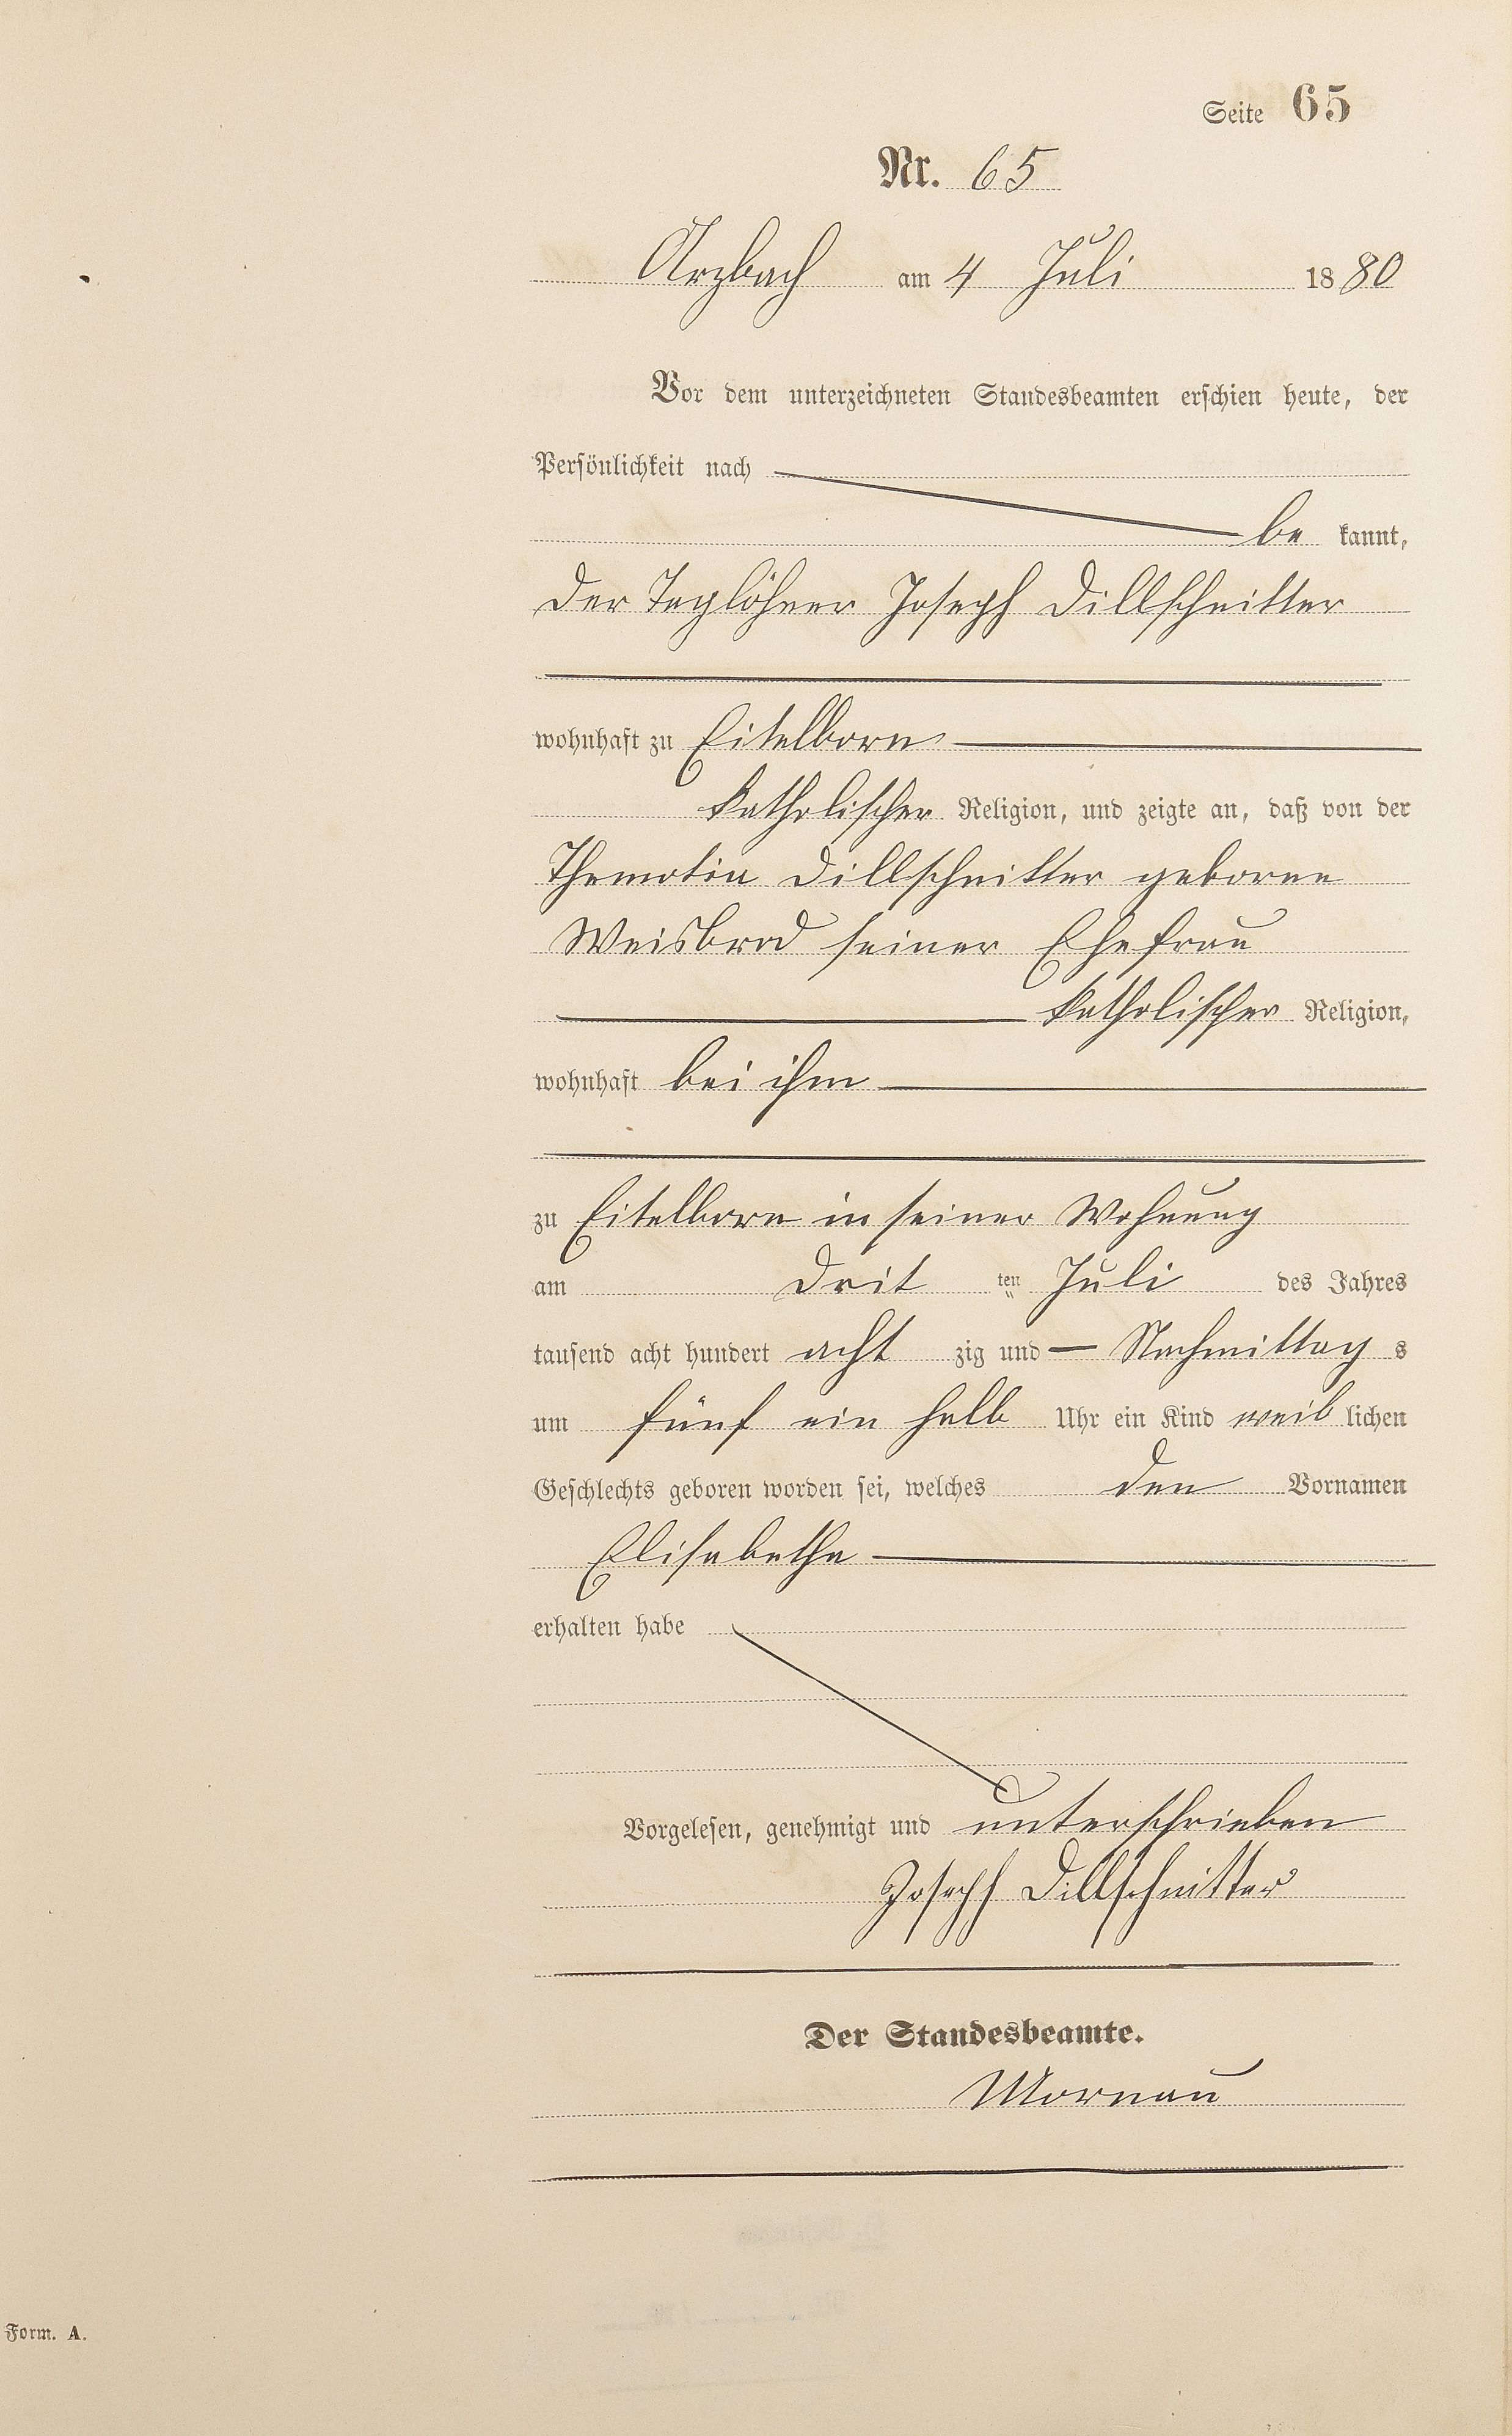 Seite 65
Nr. 65
Arzbach am 4 Juli 1880
Vor dem unterzeichneten Standesbeamten erschien heute, der
Persönlichkeit nach
be kannt,
der Taglöhner Joseph Dillschnitter
wohnhaft zu Eitelborn
katholischer Religion, und zeigte an, daß von der
Themotia Dillschnitter geborne
Weisbrod seiner Ehefrau
katholischer Religion,
wohnhaft bei ihm
zu Eitelborn in seiner Wohnung
am drit ten Juli des Jahres
tausend acht hundert acht zig und — Nachmittag s
um fünf ein halb Uhr ein Kind weib lichen
Geschlechts geboren worden sei, welches den Vornamen
Elisabetha
erhalten habe
Vorgelesen, genehmigt und unterschrieben
Joseph Dillschnitter
Der Standesbeamte.
Mornau
Form. A.